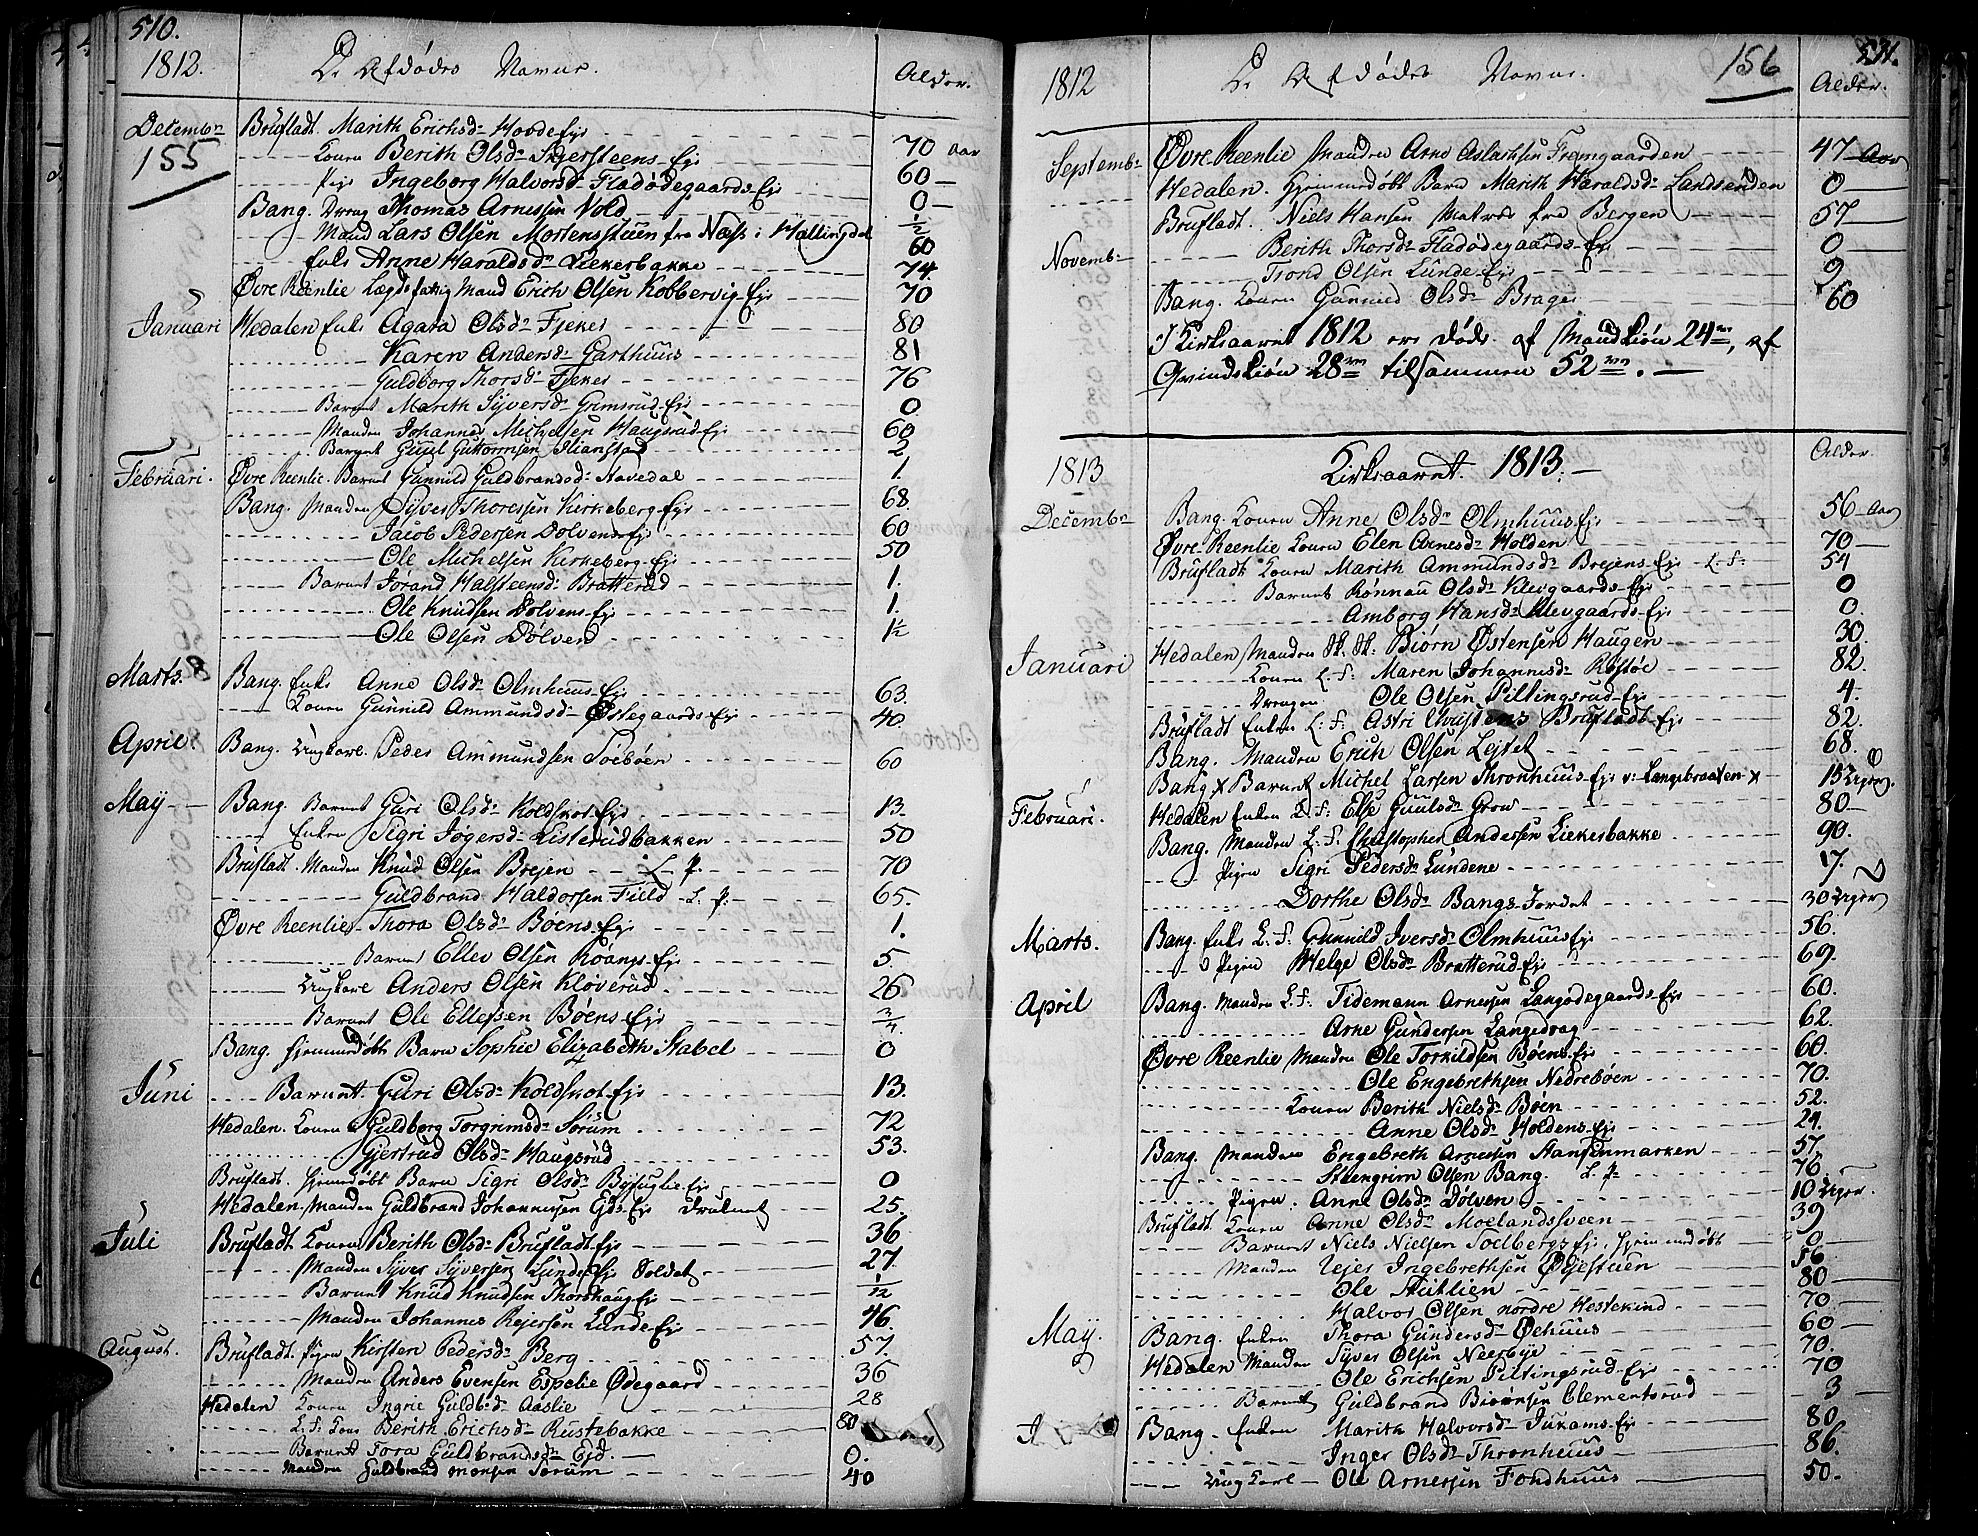 510.
1812. De Afdødes Navne. Alder.
Decembr Brufladt Marith Erichsd: Hovde Eje 70 aar
155 Konen Berith Olsd: Steens Eje 60
Pige Ingeborg Halvorsd: Fladødegaards Eje 0
Bang. Dreng Thomas Arnessen Vold ½
Mand Lars Olsen Mortensstuen fra Næss i Hallingdal 60
Enke Anne Haraldsd: Liekerbakke 74
Øvre Reenlie Lægdsfattig Mand Erich Olsen Kobbervig Eje 70
Januari Hedalen Enke Agata Olsd: Fjeker 80
Karen Andersd: Garthuus 81
Guldborg Thorsd: Fjeker 76
Barnet Marith Syversd: Grimsrud Eje 0
Manden Johannes Michelsen Haugsrud Eje 60
Barnet Guul Guttormsen Ilianstad 2
Februari. Øvre Reenlie. Barnet Gunnild Guldbrandsd: Havedal 1.
Bang. Manden Syver Thoressen Kirkeberg Eje 68
Jacob Pedersen Dolvens Eje 60
Ole Michelsen Kirkeberg Eje 50
Barnet Jorand Halsteensd: Bratterud 1.
Ole Knudsen Dølvens Eje 1.
Ole Olsen Dølven 1½
Marts. Bang. Enke Anne Olsd: Olmhuus Eje 63
Konen Gunnild Ammundsd: Østegaards Eje 40
April. Bang. Ungkarl. Peder Ammundsen Søebøen 60
May Bang. Barnet Guri Olsd: Koldskot Eje 13.
Enken Sigri Jogersd: Listerudbakken 50
Brufladt. Manden Knud Olsen Brejen L. P. 70
Guldbrand Haldorsen Field L. P. 65.
Øvre Reenlie Thora Olsd: Bøens Eje 1.
Barnet Ellev Olsen Roangs Eje 5
Ungkarl Anders Olsen Kløverud 26
Barnet Ole Ellefsen Bøens Eje ¾.
Bang. Hjemmedøbt Barn Sophie Elizabeth Stabel 0
Juni Barnet Guri Olsd: Koldskot Eje 13.
Hedalen. Konen Guldborg Torgrimsd: Sørum 72
Gjertrud Olsd: Haugsrud 53.
Brufladt. Hjemdøbt Barn Sigri Olsd: Byfuglie Eje 0
Hedalen Manden Guldbrand Johannessen Ejds Eje Druknet 25.
Juli Brufladt Konen Berith Olsd: Brufladt Eje 36
Manden Syver Syversen Lunde Eje Soldat 27
Barnet Knud Knudsen Thorshaug Eje ½
Manden Johannes Rejersen Lunde Eje 46.
August. Brufladt. Pigen Kirsten Pedersd: Berg 57.
Manden Anders Evensen Espelie Ødegaard 36
Hedalen Konen Ingrie Guldbd: Aaslie 28
L. F. Kone Berith Erichsd: Rustebakke 80
Barnet Tora Guldbrandsd: Ejd. 0.
Manden Guldbrand Monsen Sørum 40
511.
1812 De Afdødes Navne. 156 Alder.
Septembr Øvre Reenlie Manden Arne Aslachsen Fremgaarden 47 Aar
Hedalen. Hjemmedøbt Barn Marith Haraldsd: Landsenden 0
Brufladt. Niels Hansen Matros fra Bergen 57
Novembr Berith Thorsd: Fladødegaards Eje 0
Trond Olsen Lunde Eje 9
Bang. Konen Gunnild Olsd: Brager 60
I Kirkeaaret 1812 ere døde af Mandkiøn 24, af
Qvindekiøn 28 tilsammen 52.
1813 Kirkeaaret. 1813. Alder.
Decembr Bang. Konen Anne Olsd: Olmhuus Eje 56 Aar
Øvre Reenlie Konen Elen Arnesd: Holden 70
Brufladt Konen Marith Ammundsd: Brejens Eje L. F. 54
Barnet Rønnau Olsd: Klevgaards Eje 0
Amborg Hansd: Klevgaards Eje 0.
Januari Hedalen Manden Sk. Sk: Biørn Østensen Haugen 30.
Konen L. F: Maren Johannisd: Røstøe 82.
Drengen Ole Olsen Piltingsrud Eje 4.
Brufladt Enken L. F. Astri Brufladt Eje 82.
Bang. Manden Erich Olsen Lejtet 68.
Bang x Barnet Michel Larsen Thronhuus Eje v: Langebraaten x 15 Uger.
Februari. Hedalen Enken L. F: Else Guulsd: Grov 80
Bang. Manden L. F. Christopher Andersen Liekerbakke 90.
Pigen Sigri Pedersd: Lundene 17.
Dorthe Olsd: Bangs Jordet 30 Uger
Marts. Bang. Enke L. F. Gunnild Iversd: Olmhuus Eje 56.
Pigen Helge Olsd: Bratterud Eje 69.
April Bang. Manden L. F: Tidemann Arnesen Langødegaards Eje 60.
Arne Gundersen Langedrag 62.
Øvre Reenlie Manden Ole Torkildsen Bøens Eje 60.
Ole Engebrethsen Nedrebøen 70.
Konen Berith Nielsd: Bøen 52.
Anne Olsd: Holdens Eje 24.
Bang. Manden Engebreth Arnesen Hansenmarken 57.
Steengrim Olsen Bang. L. P. 76
Pigen. Anne Olsd: Dølven 10 Uger
Brufladt. Konen Anne Olsd: Moelandsveen 39
Barnet Niels Nielsen Soelbergs Eje. Hjemmedøbt 0
Manden Rejer Ingebrethsen Øyestuen 56
Ole Stutlien 80
Halvor Olsen nordre Hestekind 70
May. Bang. Enken Thora Gundersd: Øehuus 60
Hedalen Manden Syver Olsen Neerbye 70.
Ole Erichsen Piltingsrud Eje 70
Barnet Guldbrand Biørnsen Clementsrud 3
J Bang. Enken Marith Halvorsd: Jukams Eje 80
Inger Olsd: Thronhuus 86.
Ung Karl Ole Arnesen Fondhuus 50.